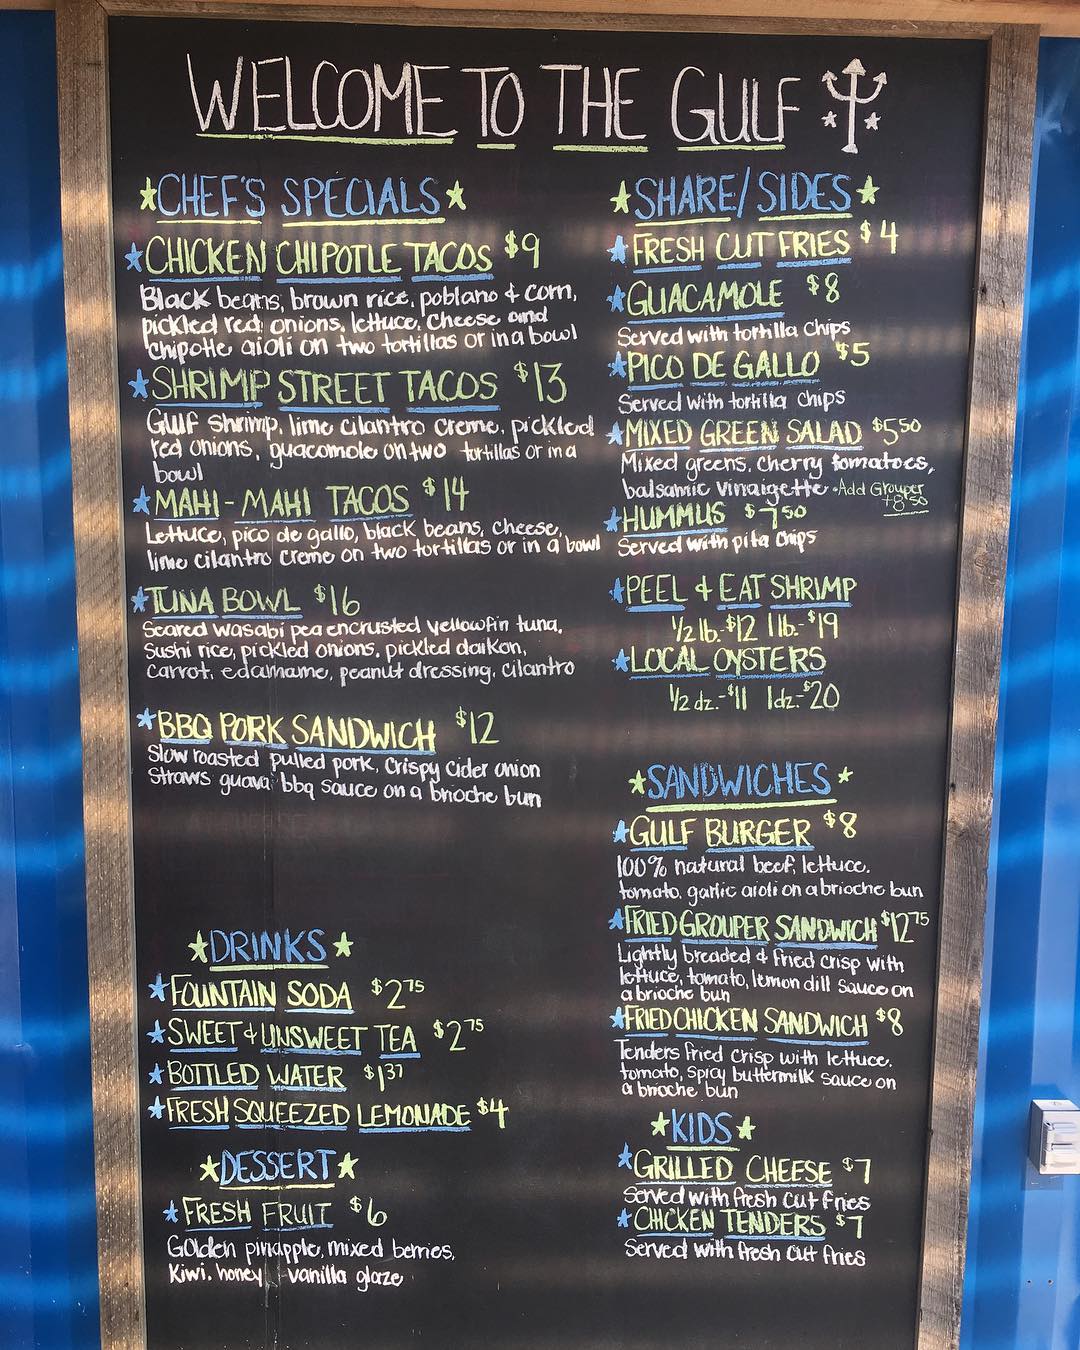 WELCOME TO THE GULF
CHEF'S SPECIALS
CHICKEN CHIPOTLE TACOS $9
Black beans, brown rice, poblano & corn,
pickled red onions, lettuce, cheese and
chipotle aioli on two tortillas or in a bowl
SHRIMP STREET TACOS $13
Gulf shrimp, lime cilantro creme, pickled
red onions, guacomole on two tortillas or in a
bowl
MAHI-MAHI TACOS $14
Lettuce, pico de gallo, black beans, cheese,
lime cilantro creme on two tortillas or in a bowl
TUNA BOWL $16
Seared wasabi pea encrusted yellowfin tuna,
Sushi rice, pickled onions, pickled daikon,
carrot, edamame, peanut dressing, cilantro
BBQ PORK SANDWICH $12
Slow roasted pulled pork, crispy cider onion
straws guava bbq sauce on a brioche bun
DRINKS
FOUNTAIN SODA $2.75
SWEET & UNSWEET TEA $2.75
BOTTLED WATER $1.37
FRESH SQUEEZED LEMONADE $4
DESSERT
FRESH FRUIT $6
Golden pinapple, mixed berries,
Kiwi, honey-vanilla glaze
SHARE/SIDES
FRESH CUT FRIES $4
GUACAMOLE $8
Served with tortilla chips
PICO DE GALLO $5
Served with tortilla chips
MIXED GREEN SALAD $5.50
Mixed greens, cherry tomatoes,
balsamic vinaigette •Add Grouper
+8.50
HUMMUS $7.50
Served with pita chips
PEEL & EAT SHRIMP
1/2 lb.-$12 1 lb.-$19
LOCAL OYSTERS
1/2 dz.-$11 1dz.-$20
SANDWICHES
GULF BURGER $8
100% natural beef, lettuce,
tomato, garlic aioli on a brioche bun
FRIED GROUPER SANDWICH $12.75
Lightly breaded & fried crisp with
lettuce, tomato, lemon dill sauce on
a brioche bun
FRIED CHICKEN SANDWICH $8
Tenders fried crisp with lettuce,
tomato, spicy buttermilk sauce on
a brioche bun
KIDS
GRILLED CHEESE $7
Served with fresh cut fries
CHICKEN TENDERS $7
Served with fresh cut fries